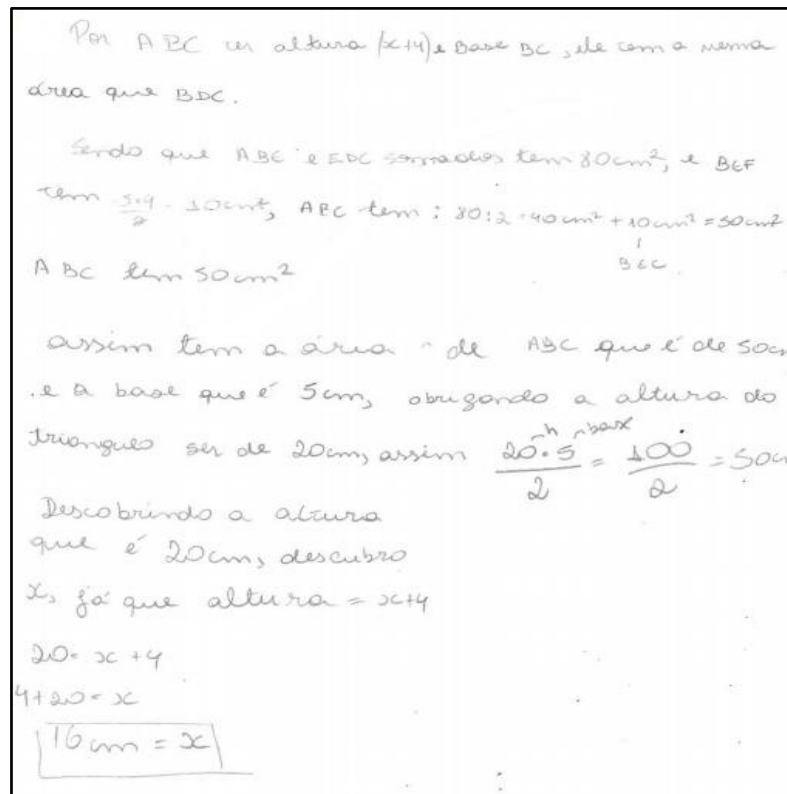 Por ABC ter altura (x+4) e Base BC, ele tem a mesma
área que BDC.
Sendo que ABE e EDC somados tem 80cm², e BEF
tem 5.4/2 = 10cm², ABC tem : 80:2 = 40cm² + 10cm² = 50cm²
BEC
ABC tem 50cm²
assim tem a área de ABC que é de 50cm
. e a base que é 5cm, obrigando a altura do
triangulo ser de 20cm, assim 20.5/2 = 100/2 = 50cm
h base
Descobrindo a altura
que é 20cm, descubro
x, já que altura = x+4
20 = x + 4
4+20 = x
16 cm = x